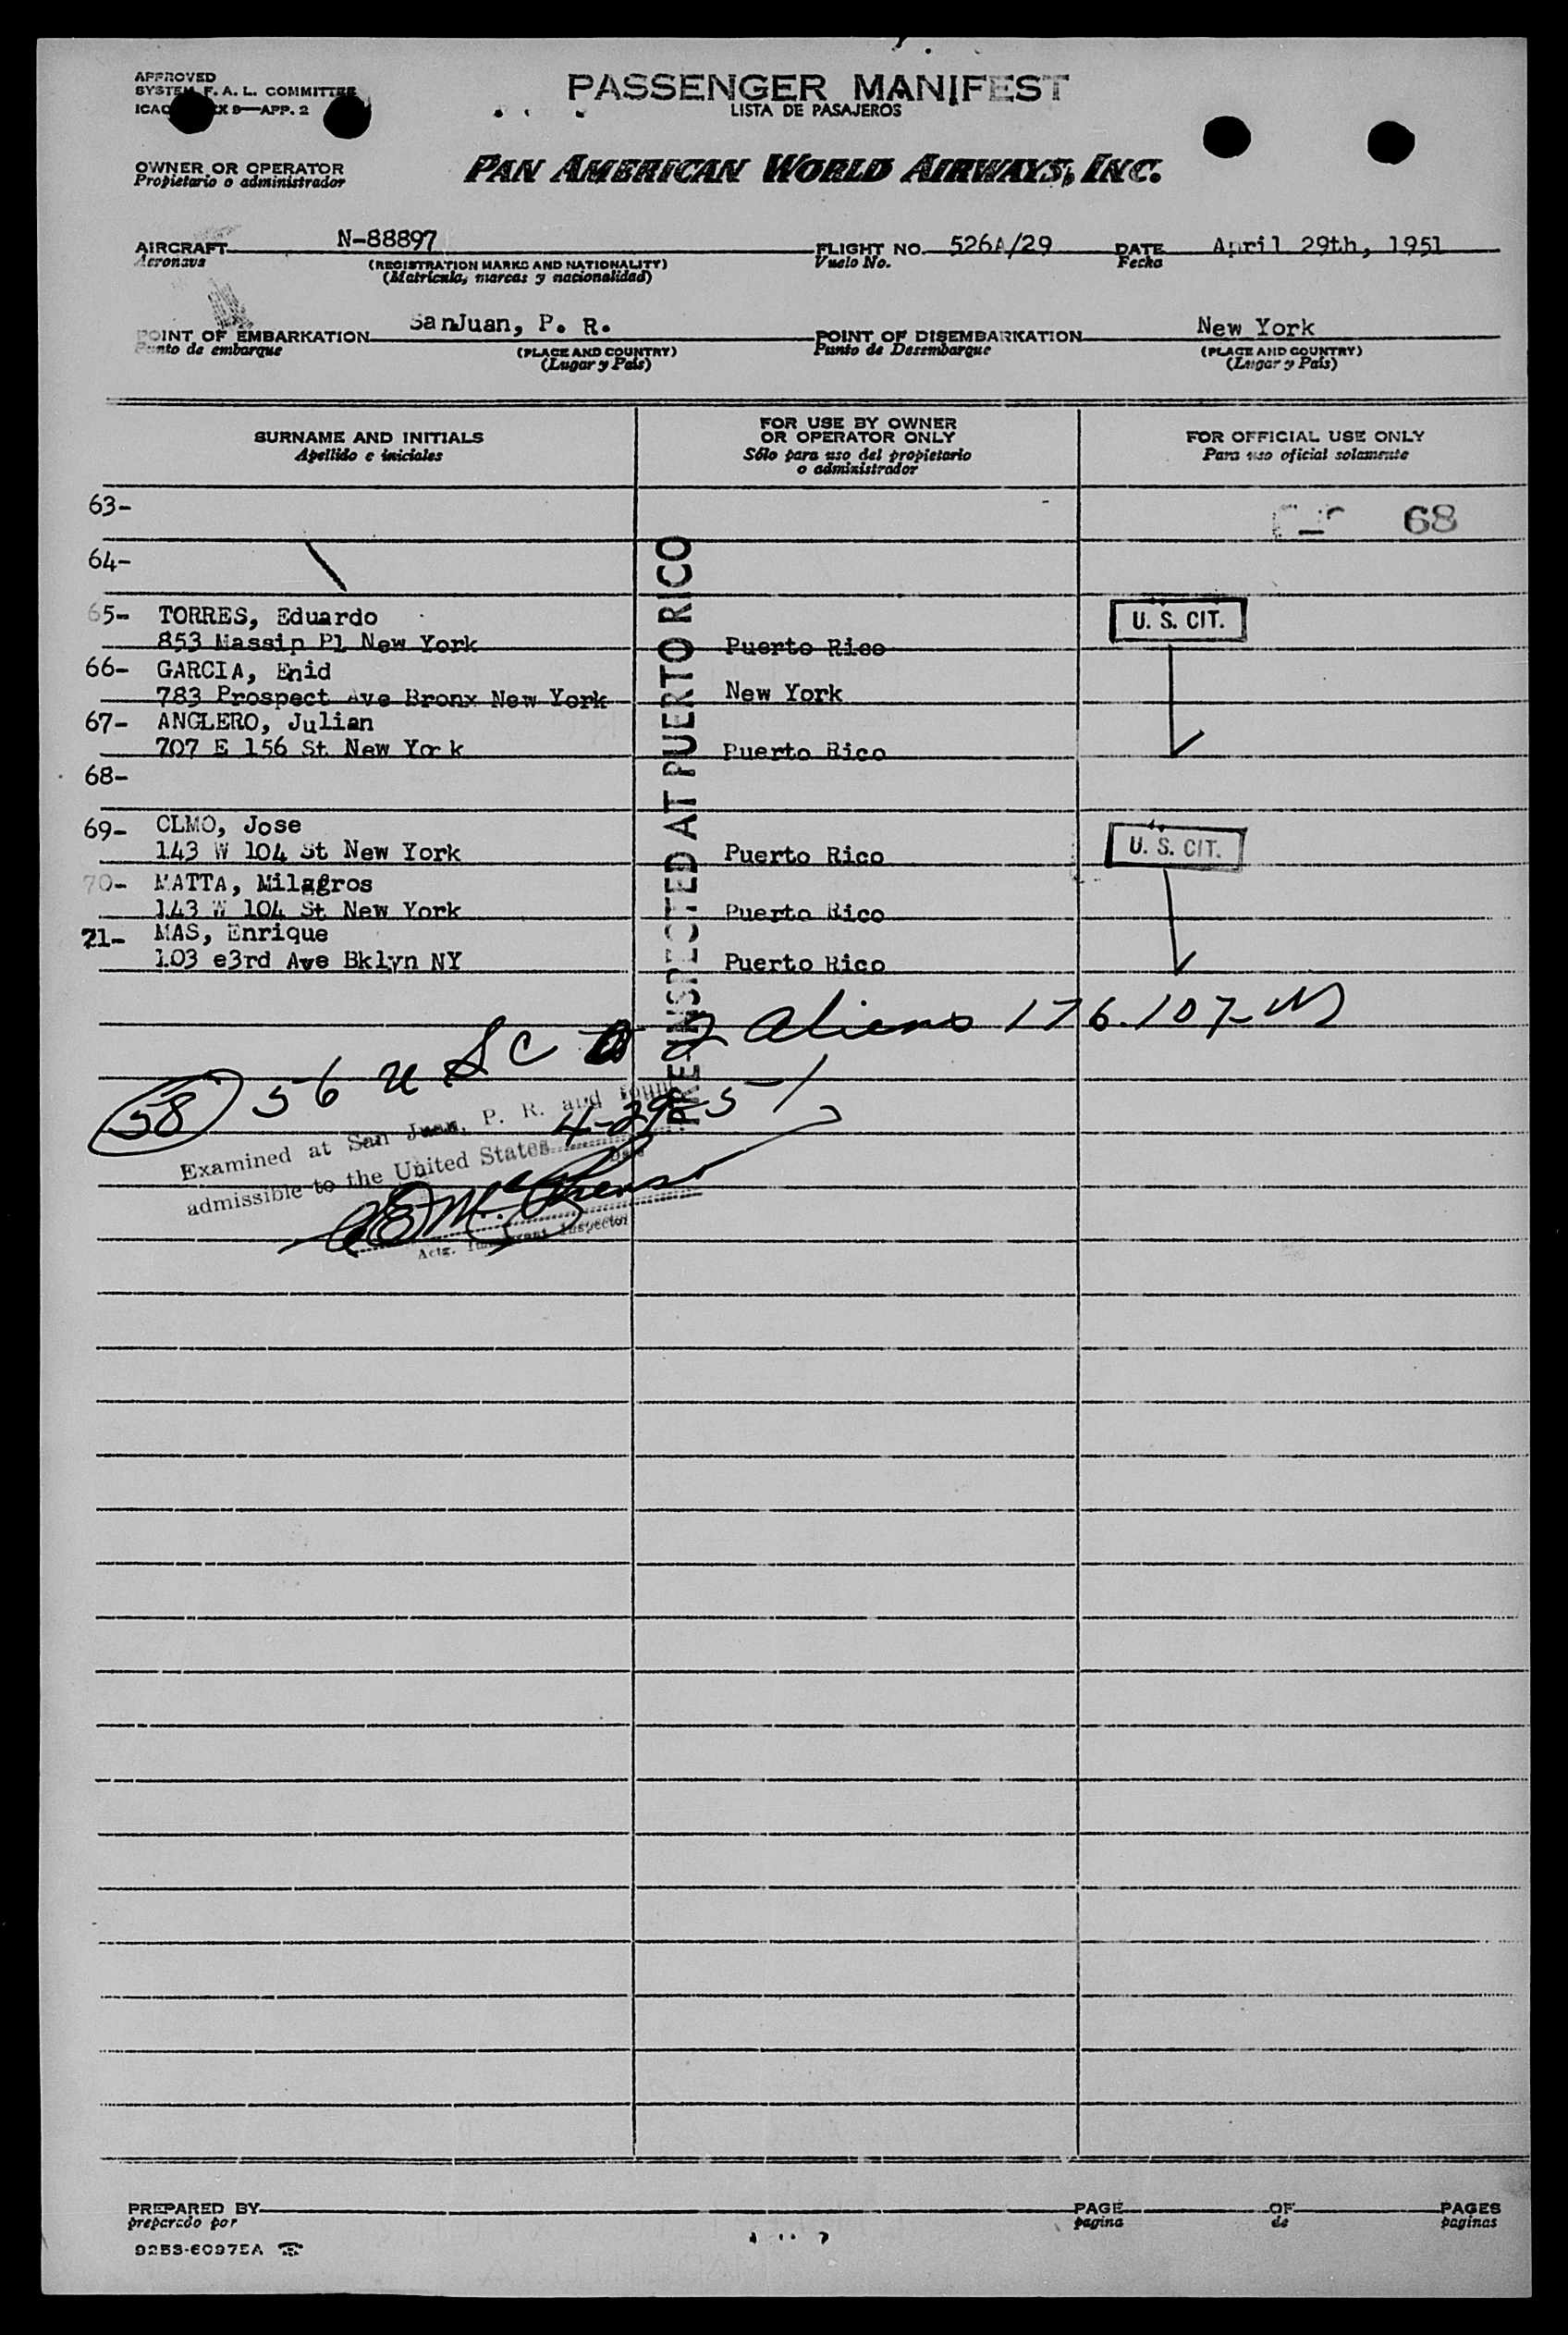 APPROVED
SYSTEM F. A. L. COMMITTEE
ICAO X 9—APP. 2
PASSENGER MANIFEST
LISTA DE PASAJEROS
OWNER OR OPERATOR
Propietario o administrador
PAN AMERICAN WORLD AIRWAYS, INC.
AIRCRAFT N-88897 FLIGHT NO. 526A/29 DATE April 29th, 1951
Aeronave (REGISTRATION MARKS AND NATIONALITY) Vuelo No. Fecha
(Matrícula, marcas y nacionalidad)
POINT OF EMBARKATION SanJuan, P. R. POINT OF DISEMBARKATION New York
Punto de embarque (PLACE AND COUNTRY) Punto de Desembarque (PLACE AND COUNTRY)
(Lugar y País) (Lugar y País)
SURNAME AND INITIALS
Apellido e iniciales
FOR USE BY OWNER
OR OPERATOR ONLY
Sólo para uso del propietario
o administrador
FOR OFFICIAL USE ONLY
Para uso oficial solamente
63-
68
64-
65- TORRES, Eduardo U. S. CIT.
853 Massip Pl New York Puerto Rico
66- GARCIA, Enid
783 Prospect Ave Bronx New York New York
67- ANGLERO, Julian
707 E 156 St New York Puerto Rico
68-
69- OLMO, Jose U. S. CIT.
143 W 104 St New York Puerto Rico
70- MATTA, Milagros
143 W 104 St New York Puerto Rico
71- MAS, Enrique
103 e3rd Ave Bklyn NY Puerto Rico
PRE-INSPECTED AT PUERTO RICO
58 56 U S C 2 aliens 176.107
Examined at San Juan, P. R. and found
admissible to the United States 4-29-51
Date
Actg. Immigrant Inspector
PREPARED BY PAGE OF PAGES
preparado por pagina de paginas